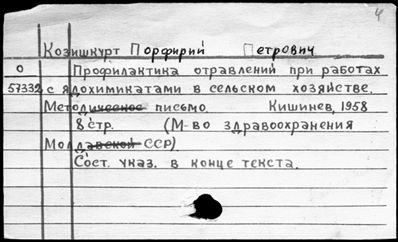 4
Козишкурт Порфирий Петрович
0 Профилактика отравлений при работах
57332 с ядохимикатами в сельском хозяйстве.
Методическое письмо. Кишинев, 1958
8 стр. (М-во здравоохранения
Молдавской ССР).
Сост. указ. в конце текста.